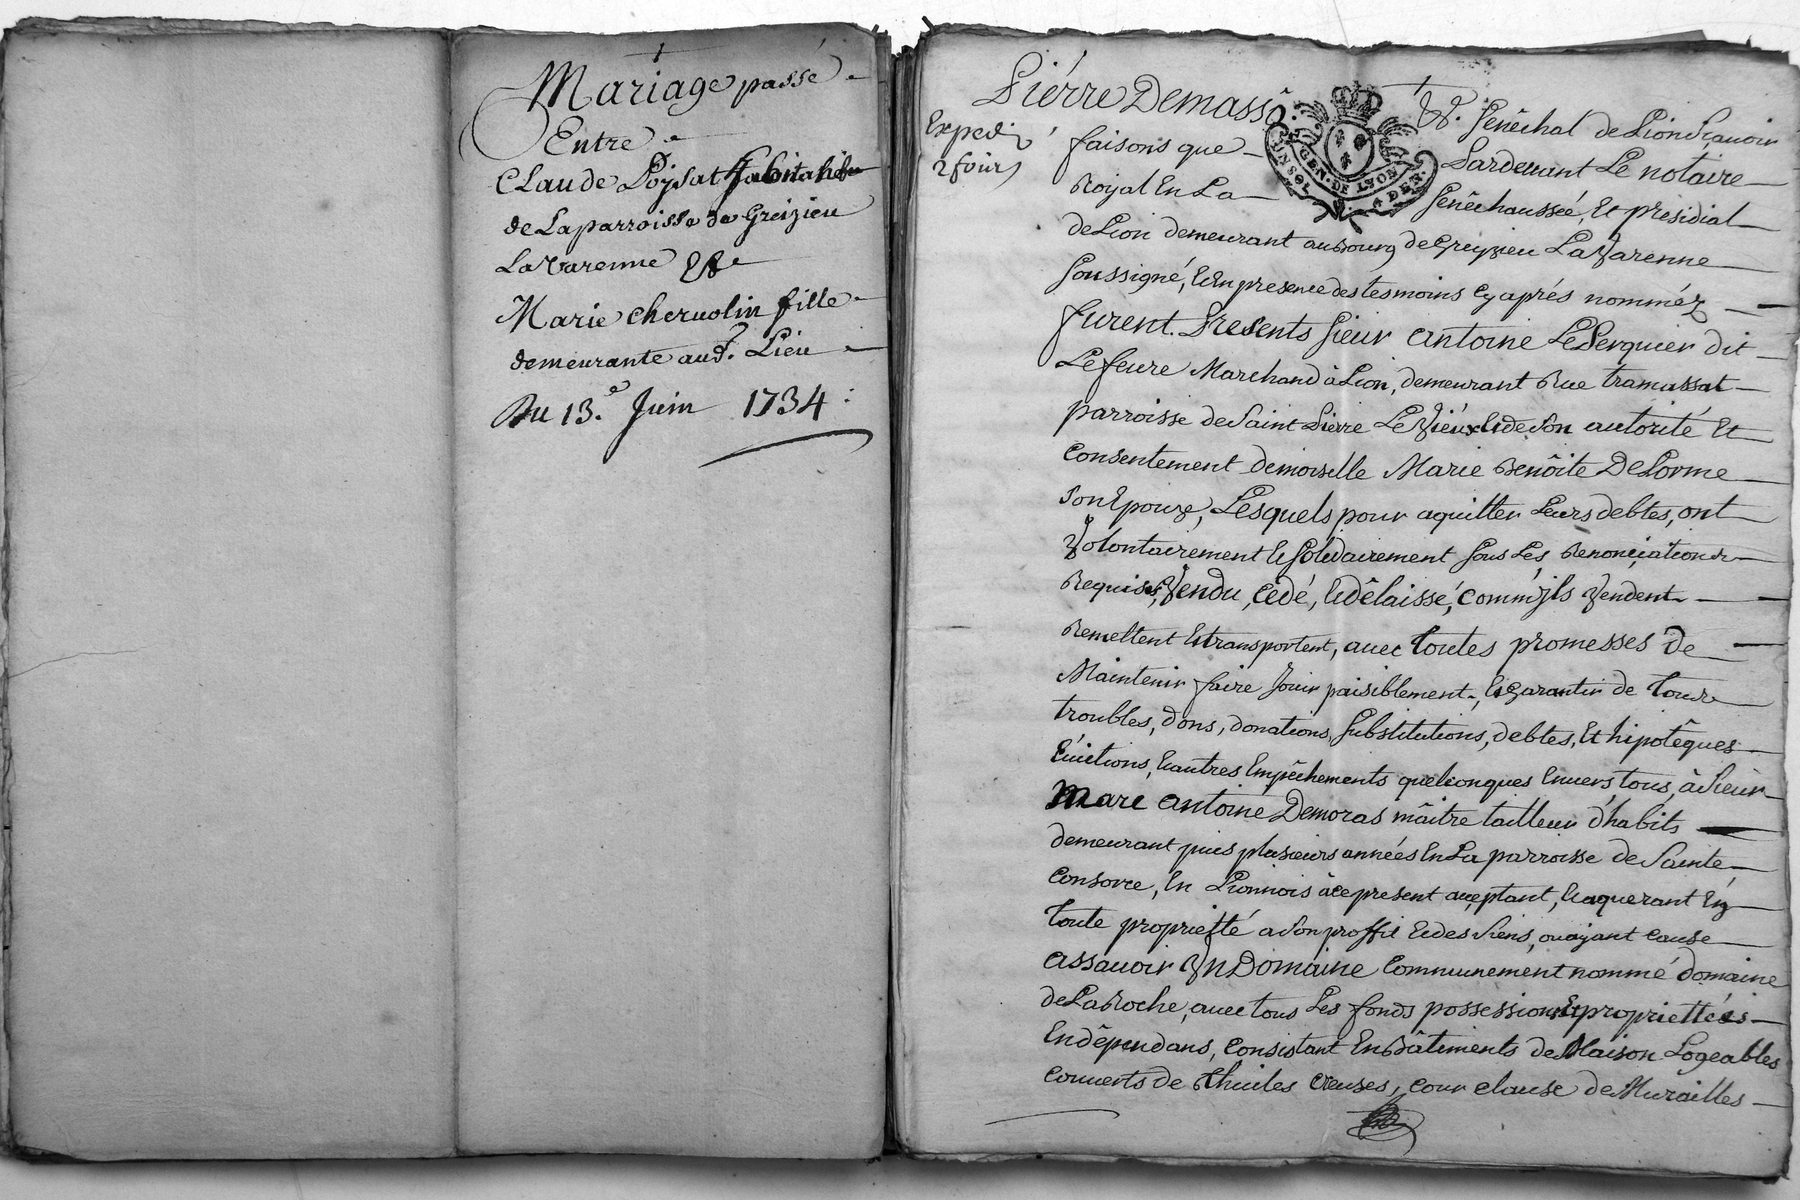 Mariage passé
Entre
Claude Poysat habitant
de La parroisse de Greizieu
La Varenne Et
Marie cheruolin fille
demeurante aud. Lieu
Du 13.e Juin 1734
Pierre Demasso. Sénêchal de Lion Sçauoir
Expedié
2 fois
faisons que Pardeuant Le notaire
Royal En La Sénêchaussée, Et présidial
de Lion demeurant au bourg de Greyzieu La Varenne
soussigné, Et En presence des tesmoins Cy aprés nomméz
furent Présents sieur antoine Le Perquier dit
Lefeure Marchand à Lion, demeurant Rue tramassat
parroisse de Saint Pierre Le Vieux Et de son autorité Et
consentement demoiselle Marie Benôite DeLorme
son Epouze, Lesquels pour aquitter Leurs debtes, ont
Volontairement Et solidairement sous Les Renonçiations
Requises, Vendu, cédé, Et dêlaissé, comm'jls Vendent
Remettent Et transportent, auec toutes promesses de
Maintenir faire Jouir paisiblement, Et garantir de tous
troubles, dons, donations, substitutions, debtes, Et hipotêques
Euictions, Et autres Empêchements quelconques Enuers tous, à Sieur
Marc antoine Demoras mâitre tailleur d'habits
demeurant puis plusieurs années En La parroisse de Sainte
Consorce, En Lionnois à ce present acceptant, Et aquerant En
toute propriétté a son proffit Et des siens, ou ayant cause
assauoir Vn Domaine communement nommé domaine
de La Roche, auec tous Les fonds possessions Et propriettées
En dêpendans, consistant En Bâtiments de Maison Logeables
couuerts de thuiles creuses, cour clause de Murailles
INSOL GEN. DE LYON 4 DEN.